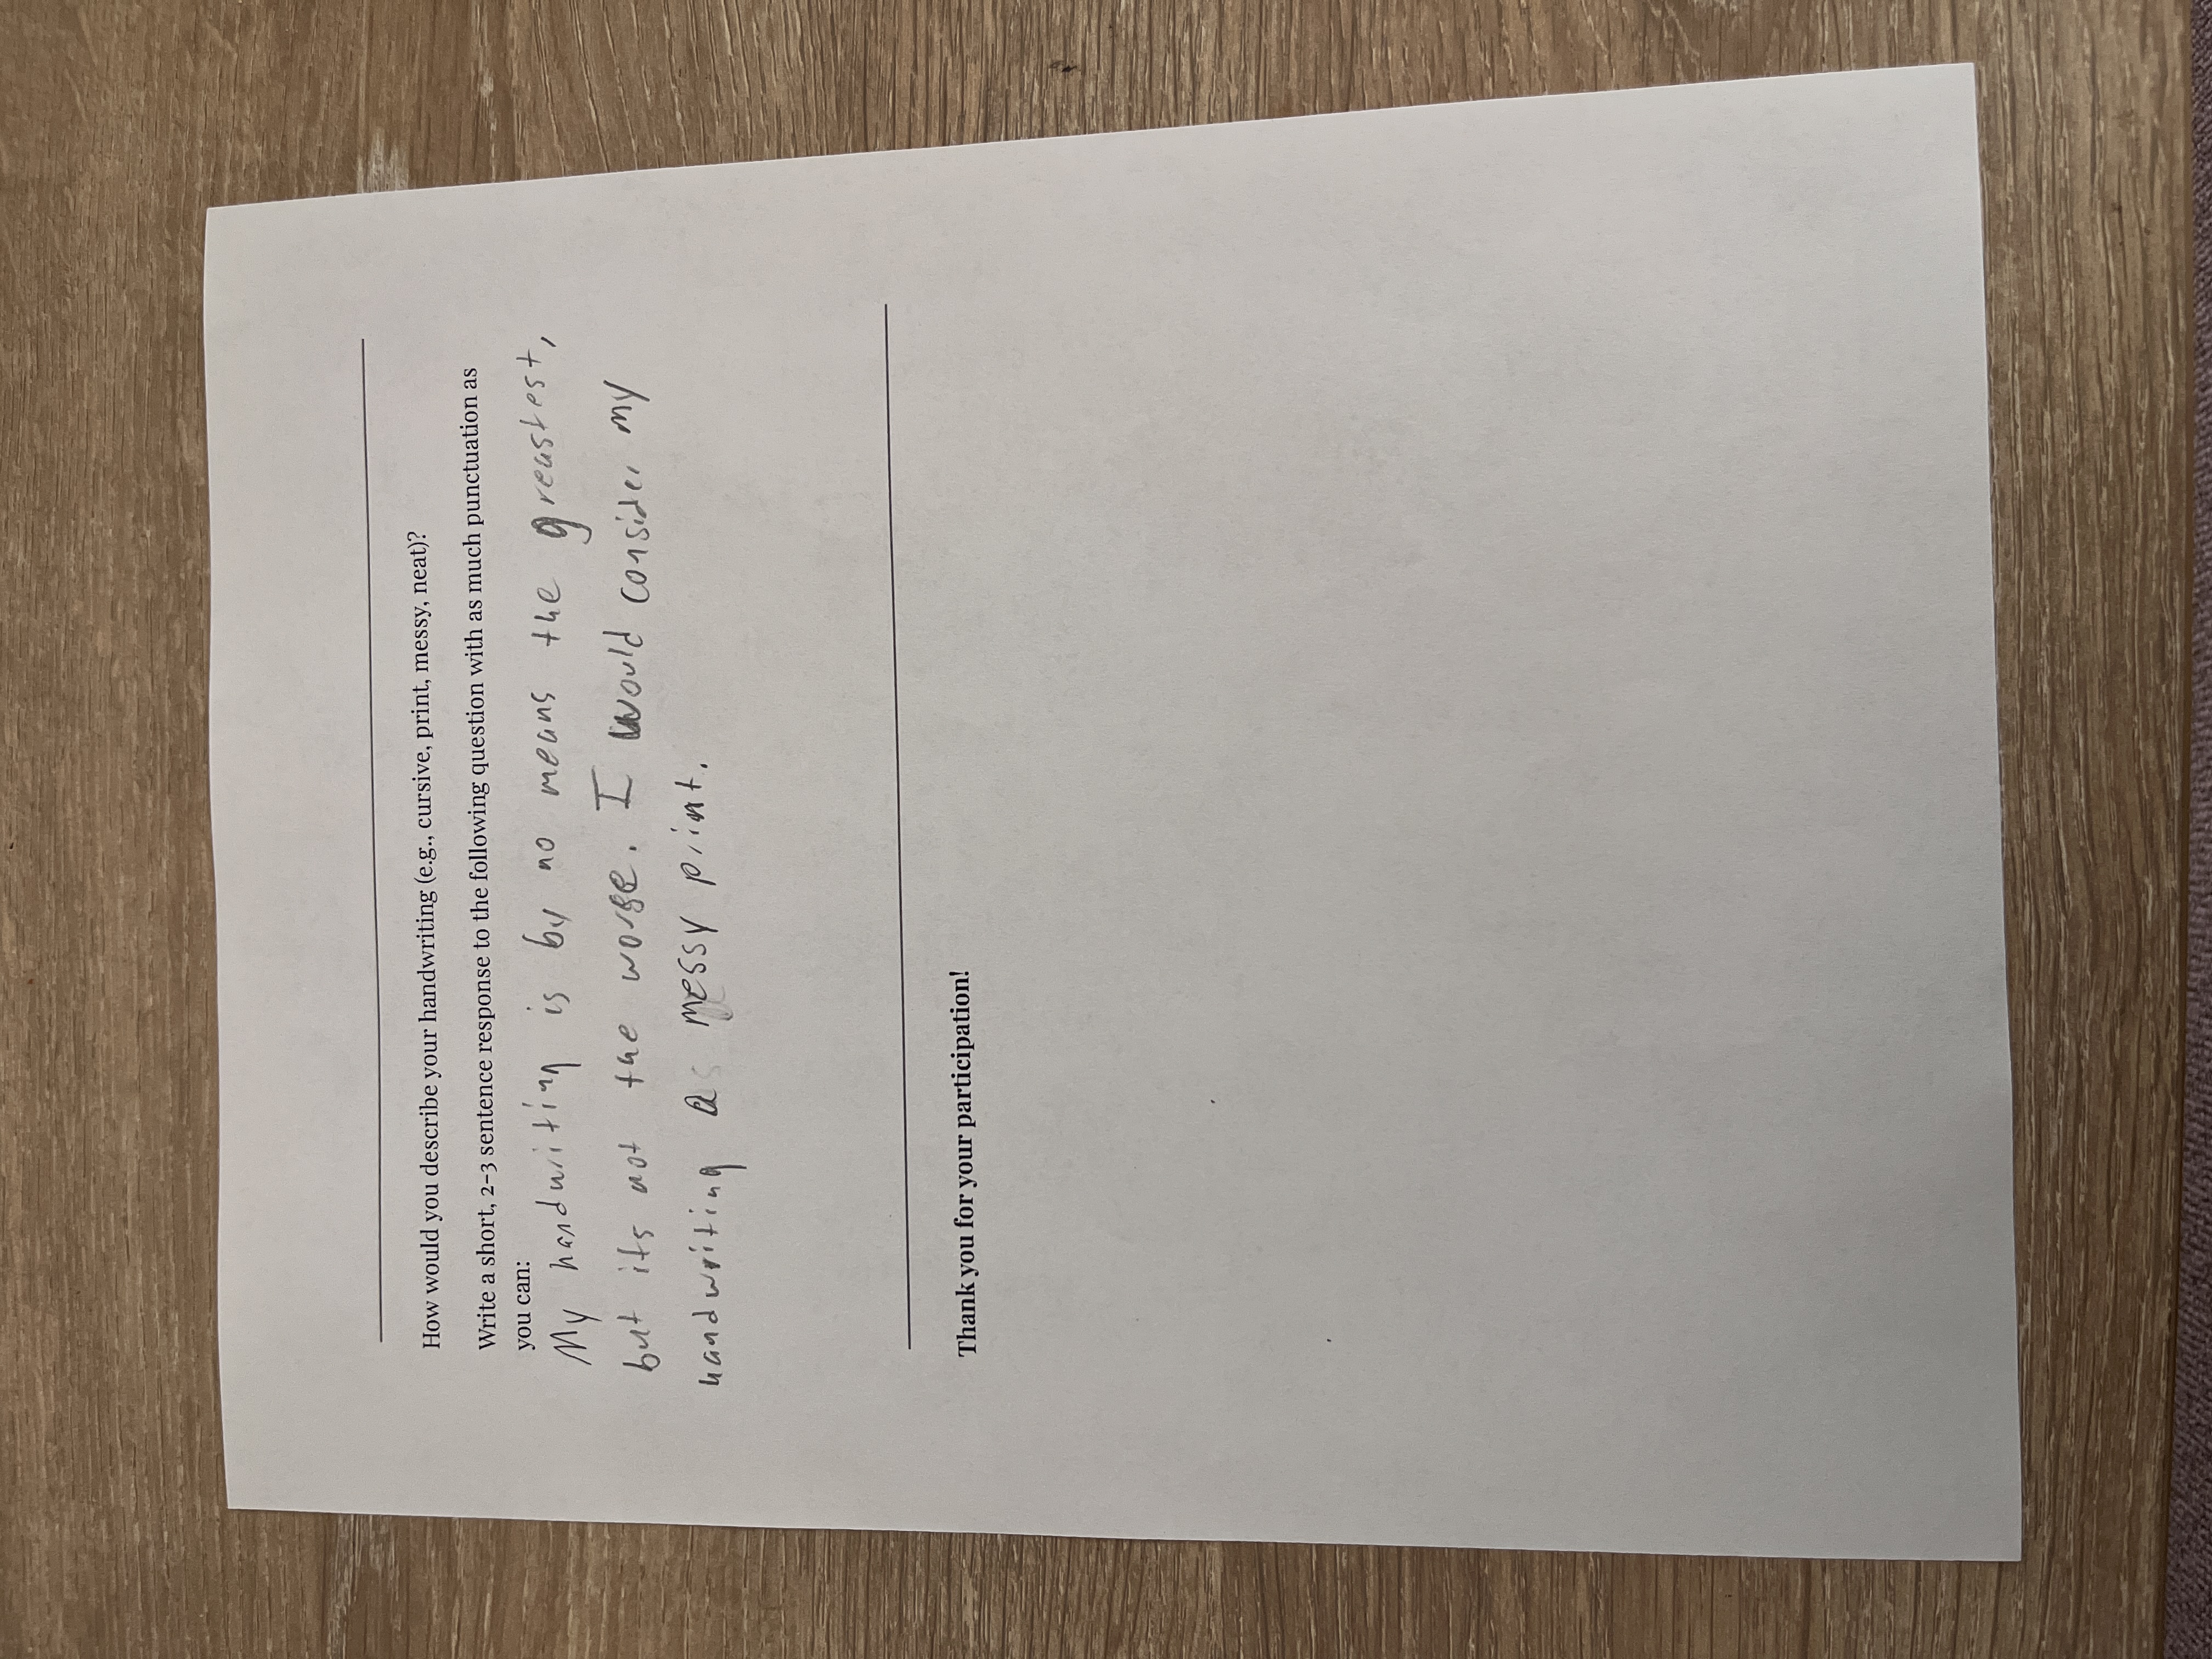 How would you describe your handwriting (e.g., cursive, print, messy, neat)?
Write a short, 2-3 sentence response to the following question with as much punctuation as
you can:
My handwriting is by no means the greastest,
but its not the worse. I would consider my
handwriting a messy print.
Thank you for your participation!